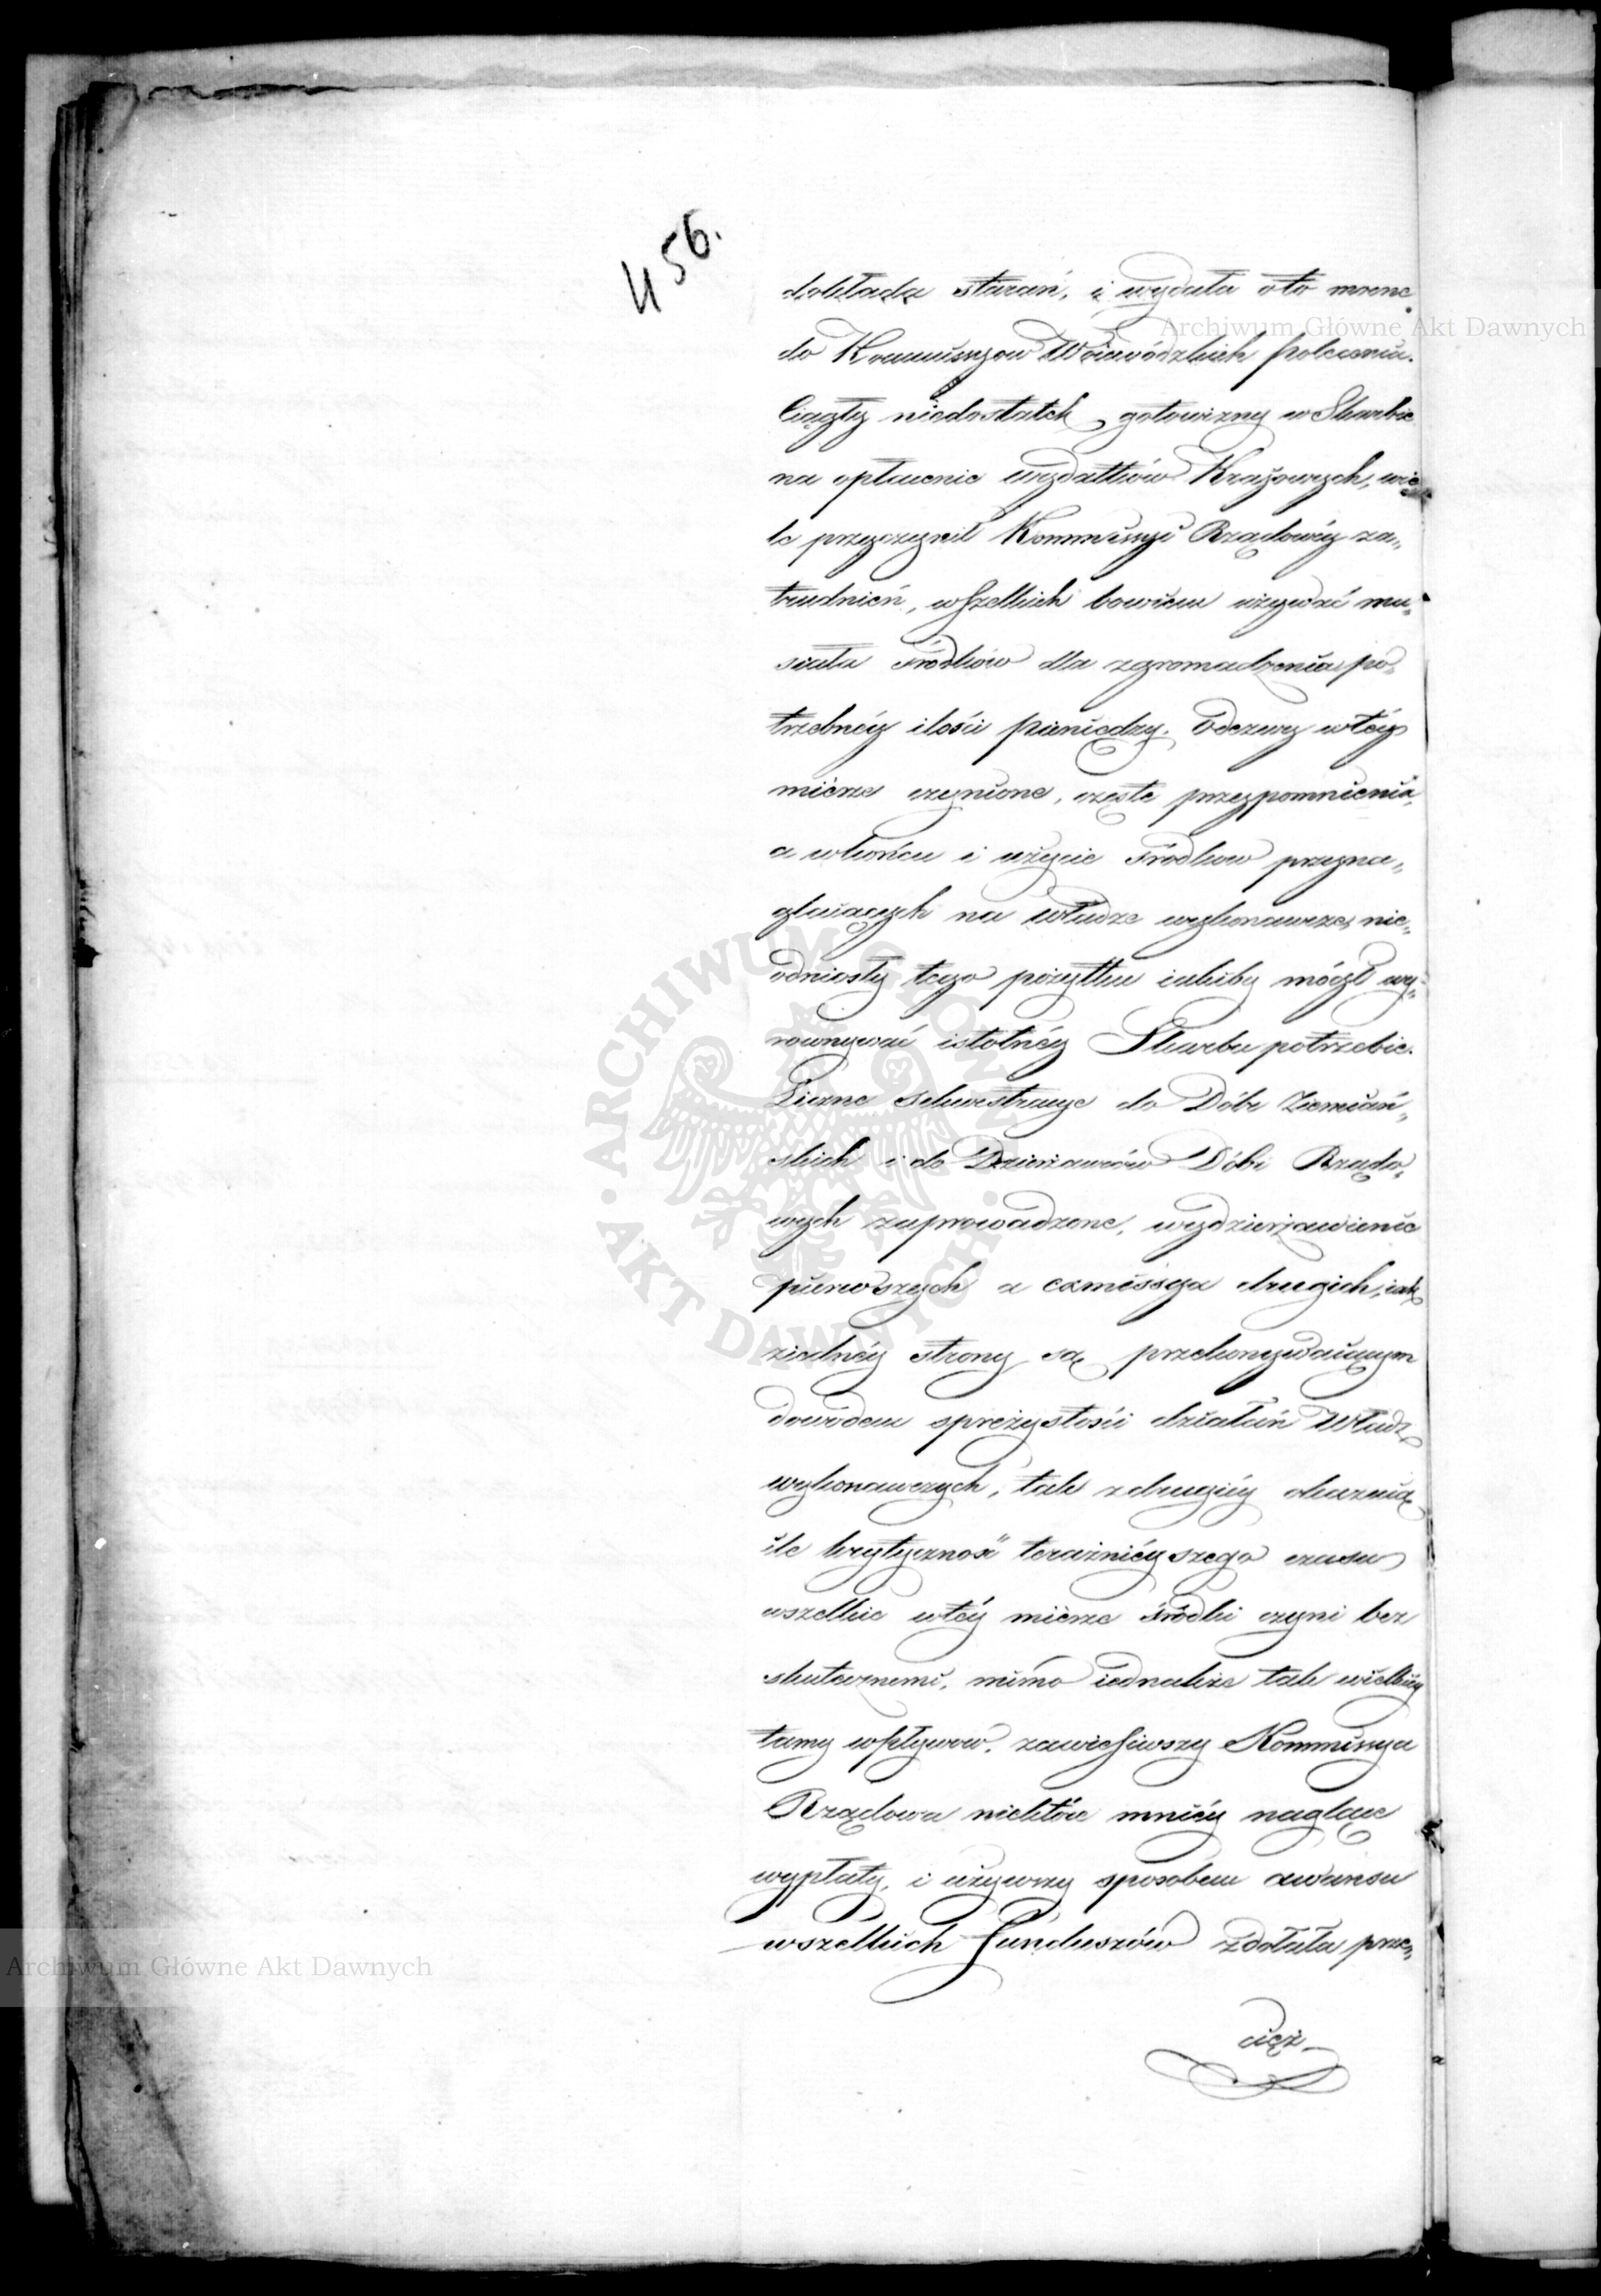 456.
dokłada starań, i wydała oto mocne
Archiwum Główne Akt Dawnych
do Kommissyow Woiewódzkich polecenia.
Ciągły niedostatek gotowizny w Skarbie
na opłacenie wydatków Kraiowych, wie
le przyczynił Kommissyi Rządowéy za„
trudnień, wszelkich bowiem używać mu„
siała śródków dla zgromadzenia po„
trzebnéy ilości pieniędzy. Odezwy wtéy
mierze czynione, częste przypomnienia,
a wkońcu i użycie środkow przyna„
glaiących na władze wykonawcze, nie„
odniosły tego pożytku iakiby mógł wy„
rownywać istotnéy Skarbu potrzebie.
Liczne sekwestracye do Dóbr Ziemiań„
skich i do Dzierżawców Dóbr Rządo„
wych zaprowadzone, wydzierżawienie
pierwszych a exmissya drugich, iak
ziednéy strony są przekonywaiącym
dowodem sprężystości działań Władz
wykonawczych, tak zdrugiéy okazuią
ile krytyczność teraźnieyszego czasu
wszelkie wtéy mierze śródki czyni bez
skutecznemi, mimo iednakże tak wielkiey
tamy wpływow, zawiesiwszy Kommissya
Rządowa niektóre mniéy naglące
wypłaty, i używszy sposobem awansu
wszelkich funduszów zdołała prze„
cięż
Archiwum Główne Akt Dawnych
ARCHIWUM GŁÓWNE · AKT DAWNYCH ·